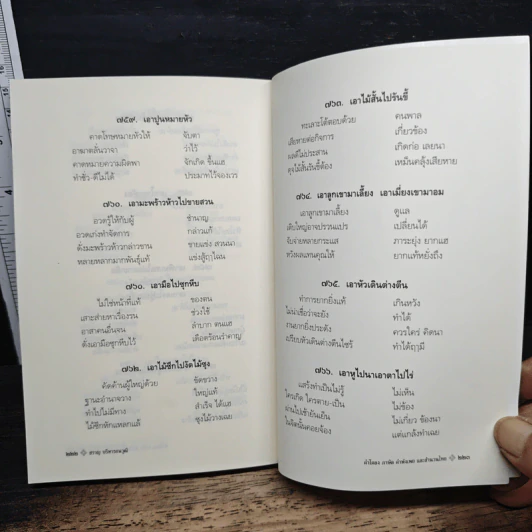 ๗๕๙. เอาปูนหมายหัว
คาดโทษหมายหัวให้ จับตา
อาฆาตลั่นวาจา ว่าไว้
คาดหมายความผิดพา จักเกิด ขึ้นแฮ
ทำชั่ว-ดีไม่ได้ ประมาทไว้จองเวร
๗๖๐. เอามะพร้าวห้าวไปขายสวน
อวดรู้ให้กับผู้ ชำนาญ
อวดเก่งทำจัดการ กล่าวแก้
ดั่งมะพร้าวห้าวกล่าวขาน ขายแข่ง สวนนา
หลายหลากมากพันธุ์แท้ แข่งสู้ฤๅไฉน
๗๖๑. เอามือไปซุกหีบ
ไม่ใช่หน้าที่แท้ ของตน
เสาะส่ายหาเรื่องรน ช่วงใช้
อาสาคนอื่นจน ลำบาก ตนแฮ
ดั่งเอามือซุกหีบไว้ เดือดร้อนรำคาญ
๗๖๒. เอาไม้ซีกไปงัดไม้ซุง
คัดค้านผู้ใหญ่ด้วย ขัดขวาง
ฐานะอำนาจวาง ใหญ่แท้
ทำไปไม่มีทาง สำเร็จ ได้แฮ
ไม้ซีกหักแหลกแล้ ซุงไม้วางเฉย
๒๒๒ ศราญ บริหารธนวุฒิ
๗๖๓. เอาไม้สั้นไปรันขี้
ทะเลาะโต้ตอบด้วย คนพาล
เสียหายต่อกิจการ เกี่ยวข้อง
ผลดีไม่ประสาน เกิดก่อ เลยนา
ดุจไม้สั้นรันขี้ต้อง เหม็นคลุ้งเสียหาย
๗๖๔. เอาลูกเขามาเลี้ยง เอาเมี่ยงเขามาอม
เอาลูกเขามาเลี้ยง ดูแล
เติบใหญ่อาจปรวนแปร เปลี่ยนได้
จับจ่ายหลายกระแส ภาระยุ่ง ยากแฮ
หวังผลแทนคุณให้ ยากแท้หยั่งถึง
๗๖๕. เอาหัวเดินต่างตีน
ทำการยากยิ่งแท้ เกินหวัง
ไม่น่าเชื่อว่าจะยัง ทำได้
งานยากยิ่งประดัง ควรใคร่ คิดนา
เปรียบหัวเดินต่างตีนไซร้ ทำได้ฤๅมี
๗๖๖. เอาหูไปนาเอาตาไปไร่
แสร้งทำเป็นไม่รู้ ไม่เห็น
ใครเกิด ใครตาย-เป็น ไม่ข้อง
ผ่านไปเช้ายันเย็น ไม่เกี่ยว ข้องนา
ในจิตนั้นคอยจ้อง แต่แกล้งทำเฉย
คำโคลง ภาษิต คำพังเพย และสำนวนไทย ๒๒๓